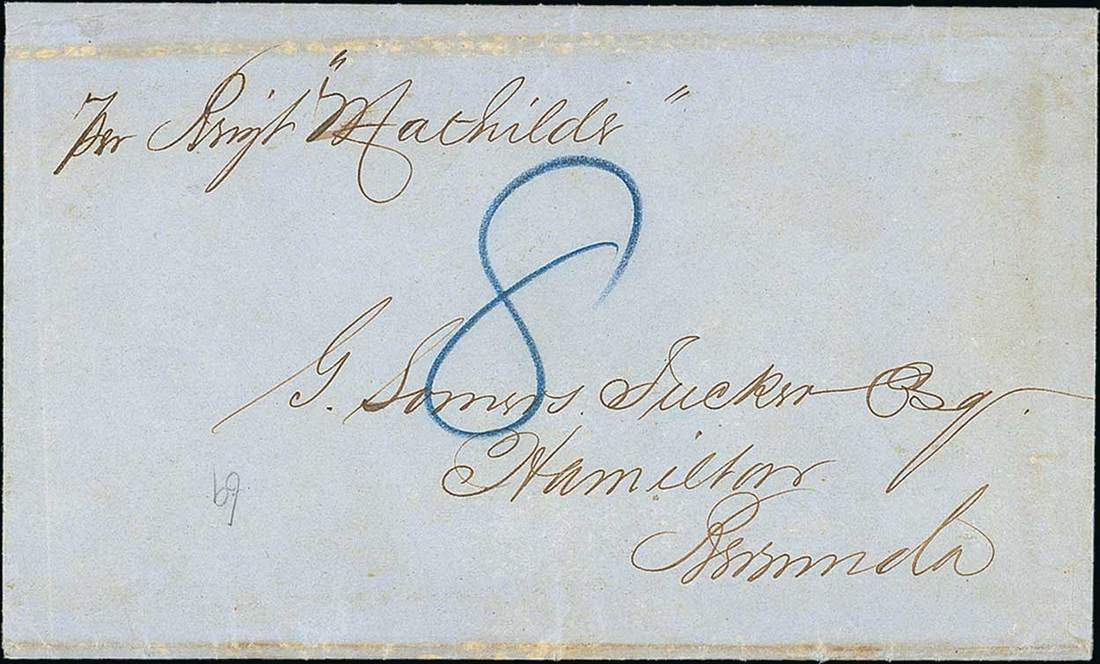 Per Brigt "Mathilde"
8
G. Somers Tucker Esq.
Hamilton
Bermuda